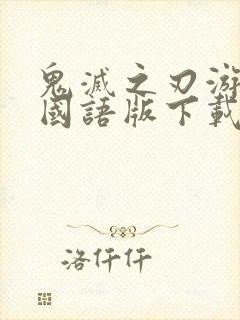 鬼滅之刃游
國語版下載
洛仟仟